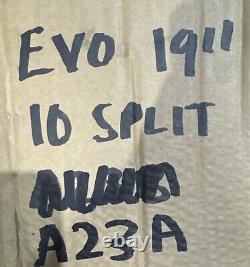 EVO 19"
10 SPLIT
A23A